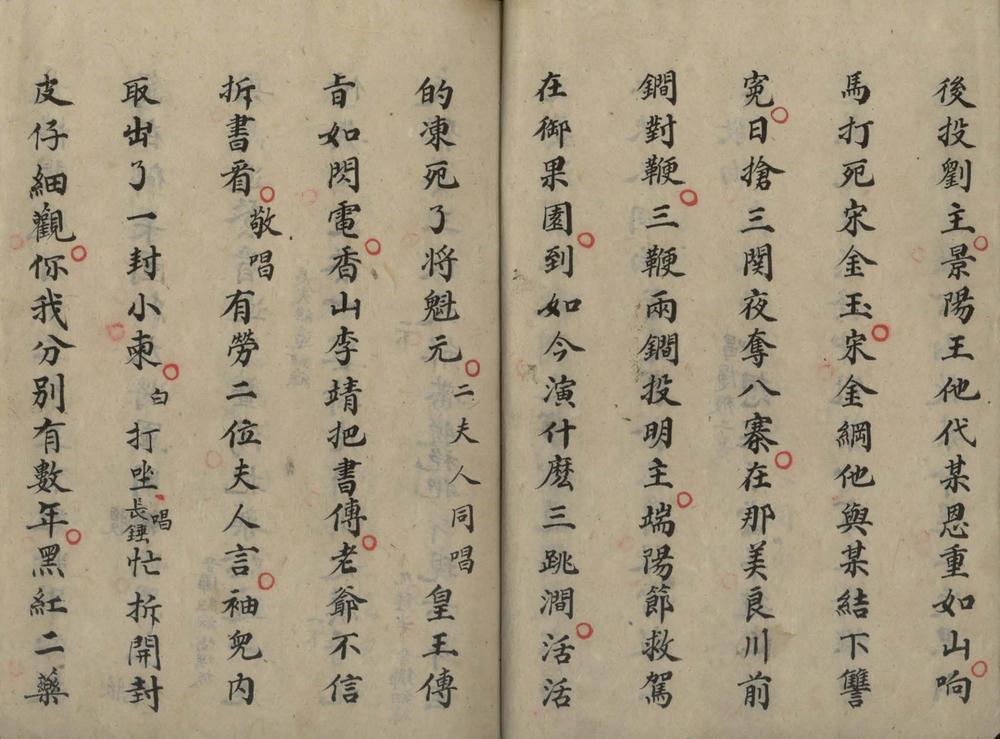 後投劉主景陽王他代某恩重如山响
馬打死宋金玉宋金綱他與某結下讐
寃日搶三関夜奪八寨在那美良川前
鐧對鞭三鞭兩鐧投明主端陽節救駕
在御果園到如今演什麽三跳澗活活
的凍死了將魁元二夫人同唱皇王傳
旨如閃電香山李靖把書傳老爺不信
拆書看敬唱有勞二位夫人言袖兜内
取出了一封小柬白打坐唱長錘忙拆開封
皮仔細觀你我分别有數年黑紅二藥